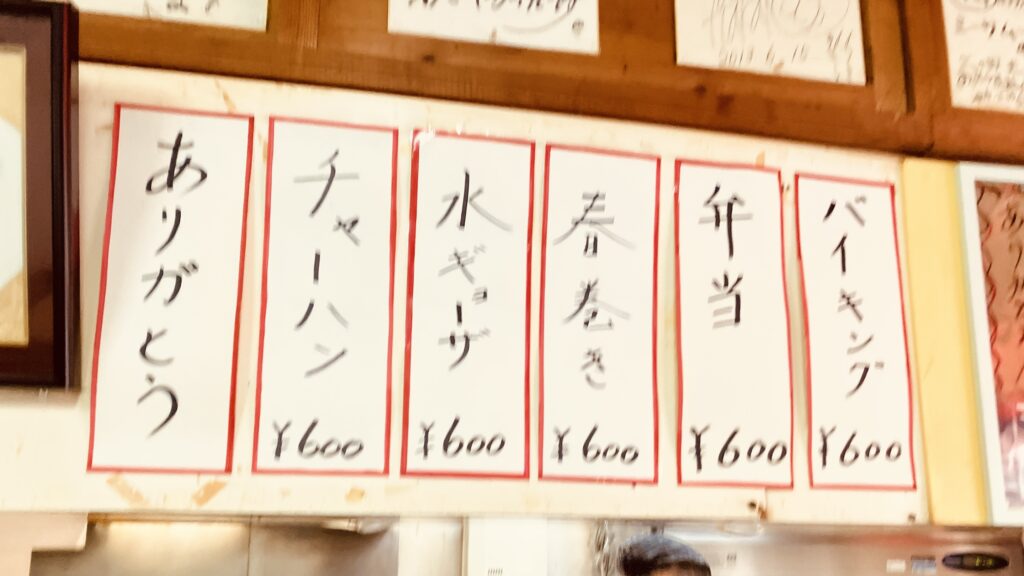 バイキング
¥600
弁当
¥600
春巻き
¥600
水ギョーザ
¥600
チャーハン
¥600
ありがとう